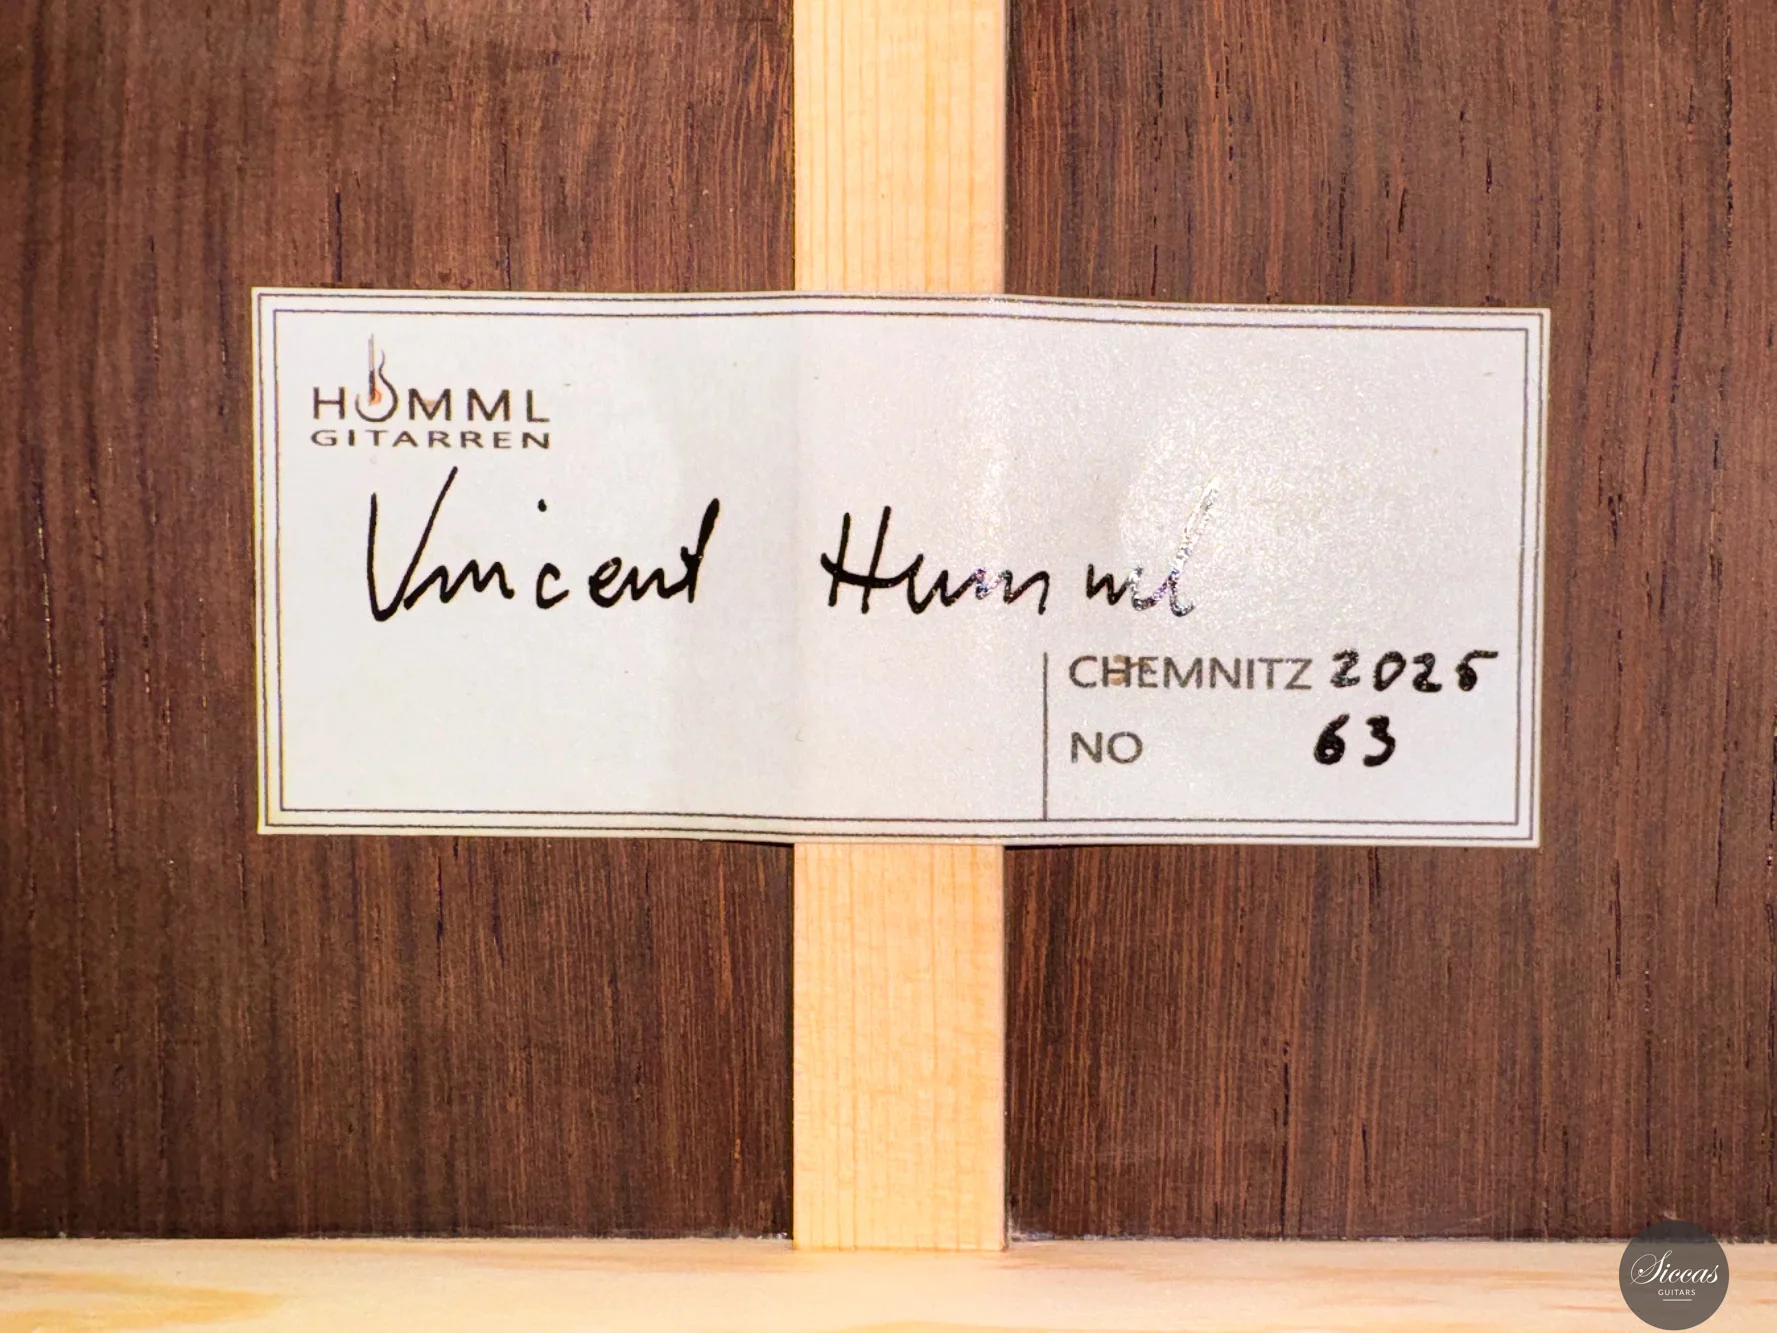 HUMML
GITARREN
Vincent Humml
CHEMNITZ 2025
NO 63
Siccas
GUITARS